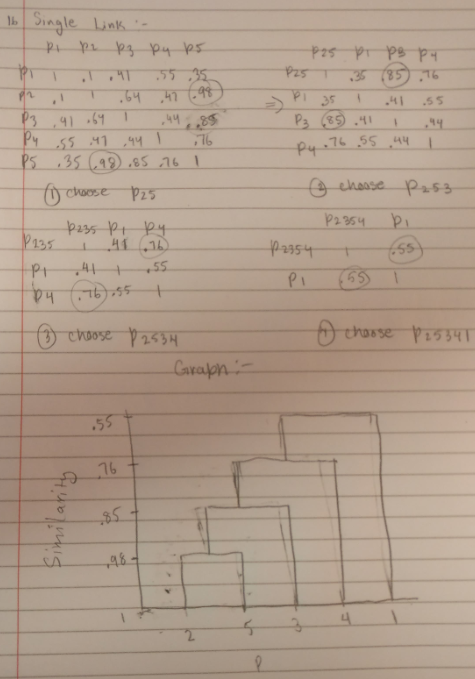 16 Single Link :-
p1 p2 p3 p4 p5
p1 1 .1 .41 .55 .35
p2 .1 1 .64 .47 .98
p3 .41 .64 1 .44 .85
p4 .55 .47 .44 1 .76
p5 .35 .98 .85 .76 1
① choose p25
p25 p1 p3 p4
⇒ p25 1 .35 .85 .76
p1 .35 1 .41 .55
p3 .85 .41 1 .44
p4 .76 .55 .44 1
② choose p253
p235 p1 p4
p235 1 .41 .76
p1 .41 1 .55
p4 .76 .55 1
③ choose p2534
p2354 p1
p2354 1 .55
p1 .55 1
④ choose p25341
Graph :-
Similarity
.55
.76
.85
.98
1
2 5 3 4 1
P